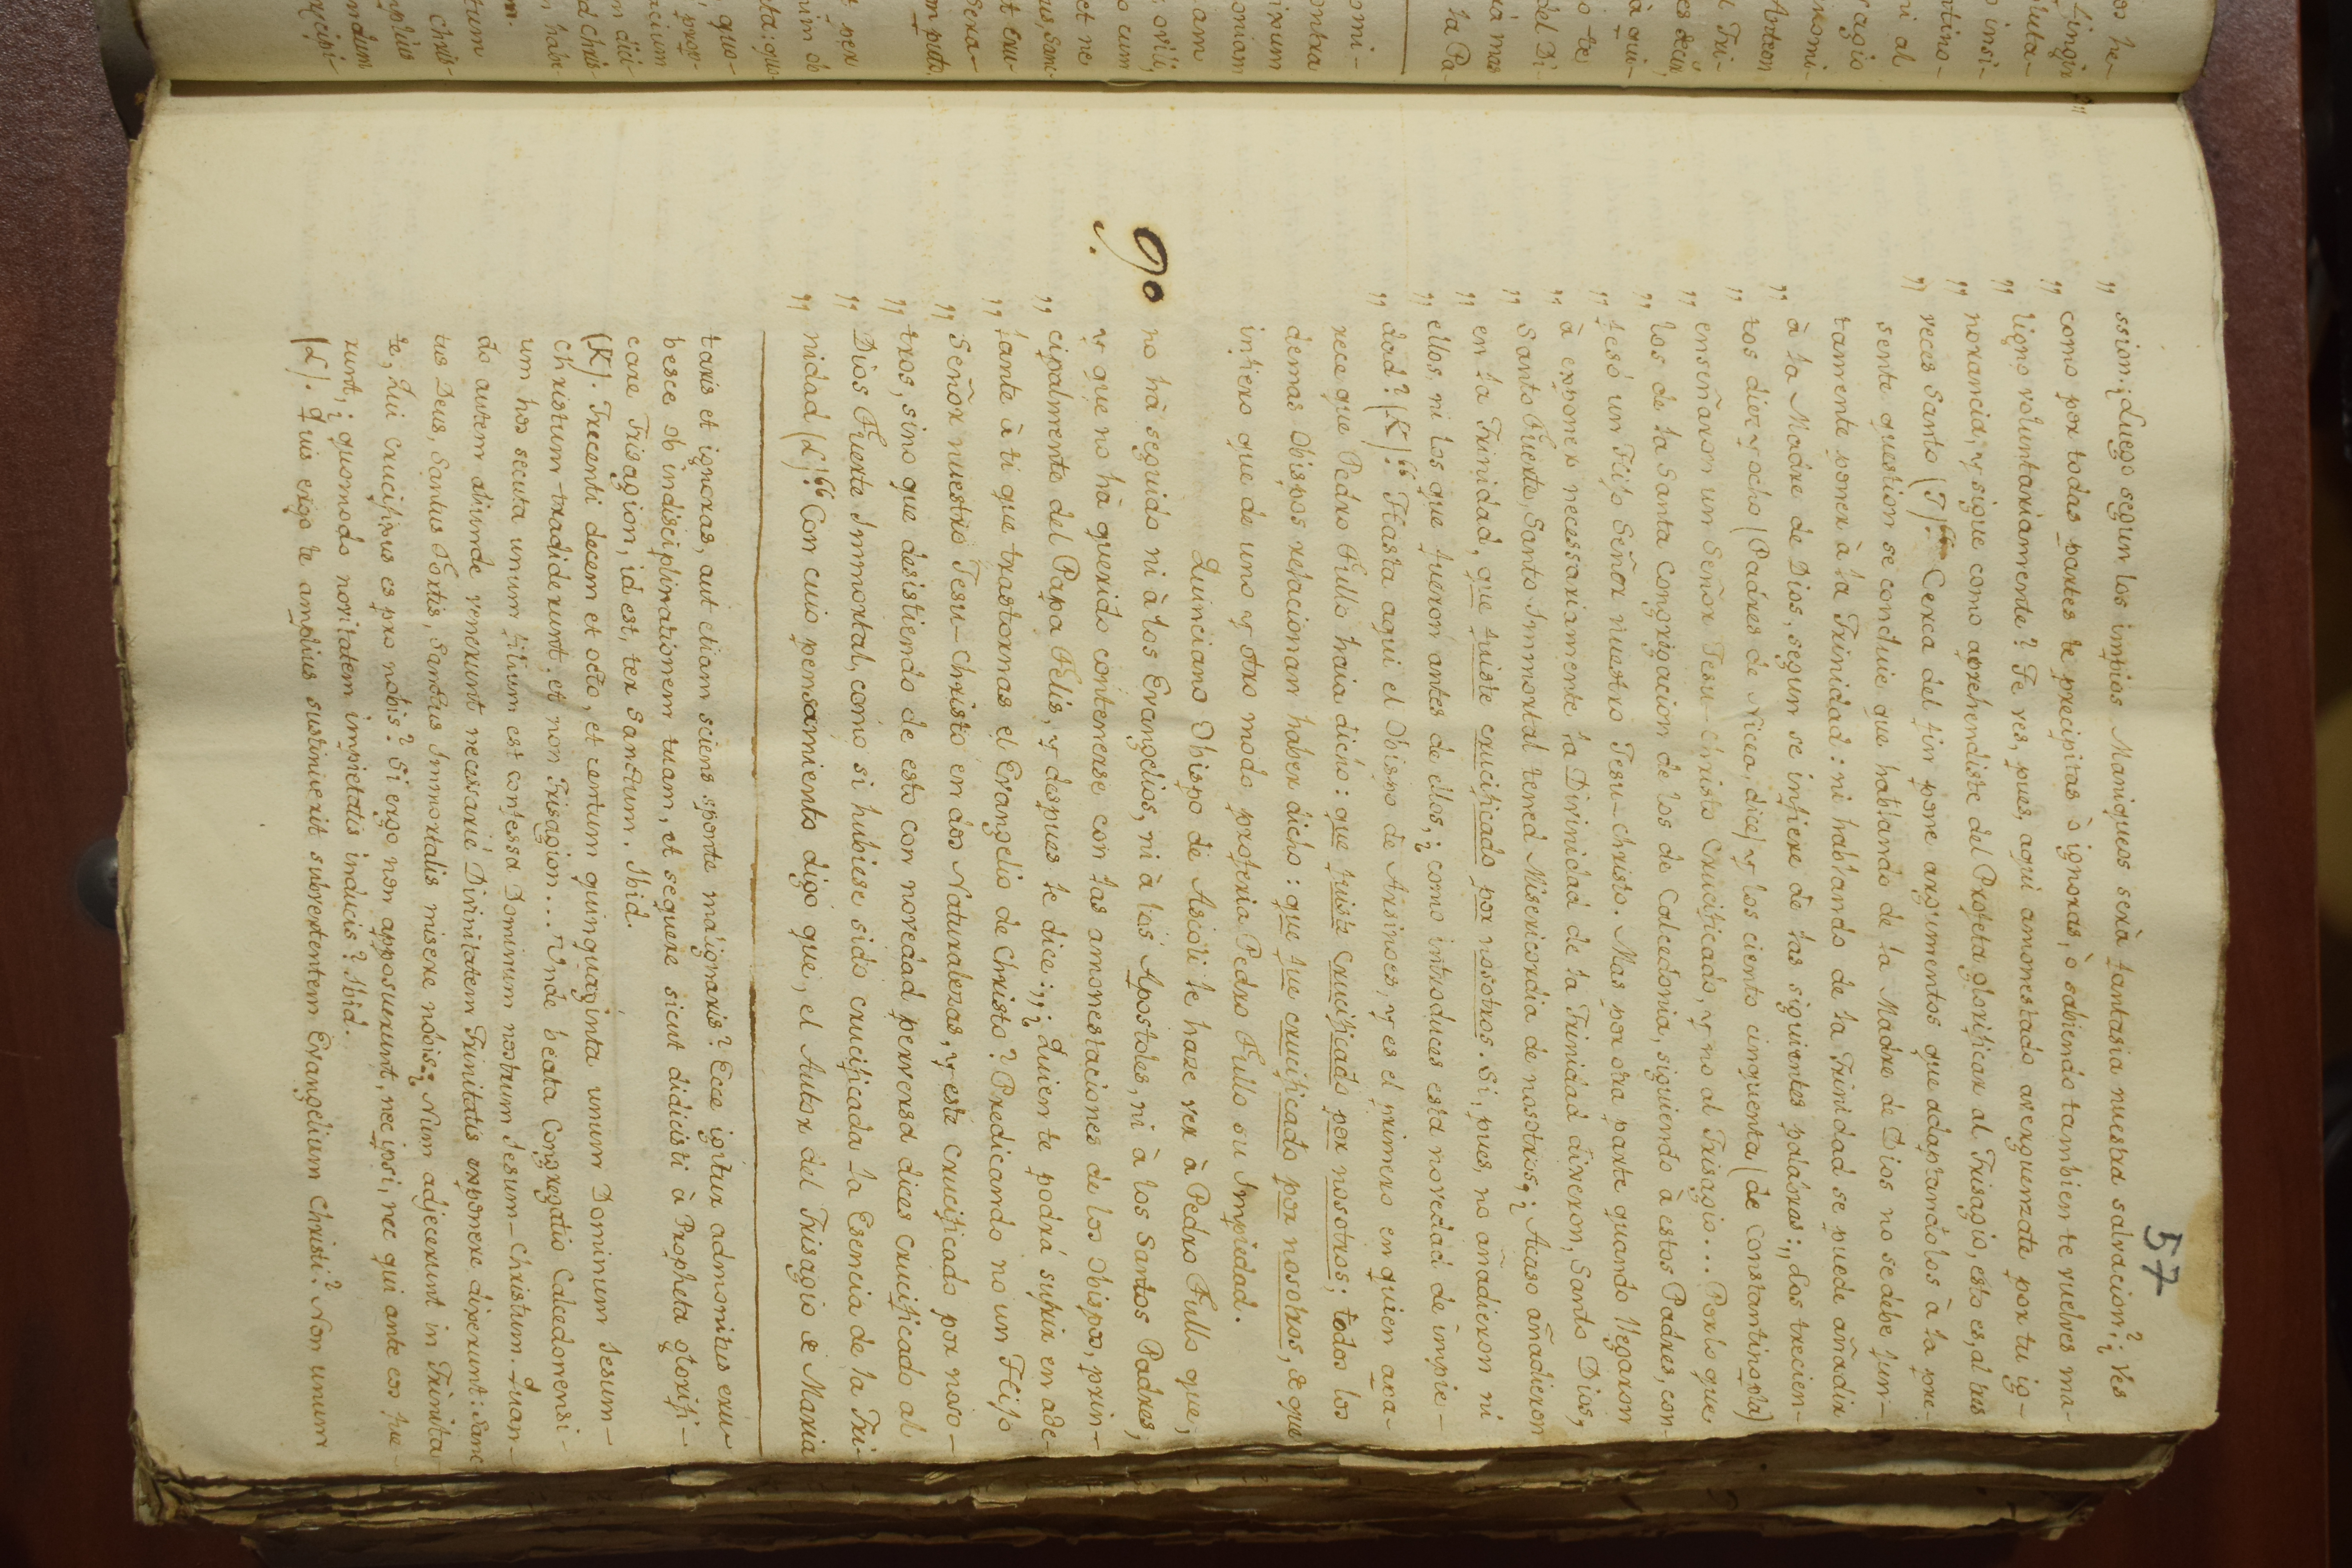 57
„ ssion: ¿Luego segun los impios Maniqueos serà fantasia nuestra salvacion? ¿Ves
„ como por todas partes te precipitas ò ignoras, ò sabiendo tambien te vuelves ma-
„ ligno voluntariamente? Te ves, pues, aqui amonestado averguenzate por tu ig-
„ norancia, y sigue como aprehendiste del Profeta glorificar al Trisagio, esto es, al tres
„ veces Santo (J).“ Cerca del fin pone argumentos que adaptandolos à la pre-
sente question se concluie que hablando de la Madre de Dios no se debe jun-
tamente poner à la Trinidad: ni hablando de la Trinidad se puede añadir
„ à la Madre de Dios, segun se infiere de las siguientes palabras: „ Los trecien-
„ tos diez y ocho (Padres de Nicea, dice) y los ciento cinquenta (de Constantinopla)
„ enseñaron un Señor Jesu-Christo Crucificado, y no al Trisagio... Por lo que
„ los de la Santa Congregacion de los de Calcedonia, siguiendo à estos Padres, con-
„ fesó un Hijo Señor nuestro Jesu-Christo. Mas por otra parte quando llegaron
„ à exponer necessariamente la Divinidad de la Trinidad dixeron, Santo Dios,
„ Santo Fuerte, Santo Immortal tened Misericordia de nosotros. ¿Acaso añadieron
„ en la Trinidad, que fuiste crucificado por nosotros. Si, pues, no añadieron ni
„ ellos, ni los que fueron antes de ellos, ¿como introduces esta novedad de impie-
„ dad? (K).“ Hasta aqui el Obispo de Arsinoes, y es el primero en quien apa-
rece que Pedro Fullo haia dicho: que fuiste Crucificado por nosotros; todos los
demas Obispos relacionan haber dicho: que fue crucificado por nosotros, de que
infiero que de uno y otro modo proferia Pedro Fullo su Impiedad.
90 Quinciano Obispo de Ascoli le haze ver à Pedro Fullo que,
no hà seguido ni à los Evangelios, ni à los Apostoles, ni à los Santos Padres,
y que no hà querido contenerse con las amonestaciones de los Obispos, prin-
cipalmente del Papa Felis, y despues le dice: „ ¿Quien te podrá sufrir en ade-
„ lante à ti que trastornas el Evangelio de Christo? Predicando no un Hijo
„ Señor nuestro Jesu-Christo en dos Naturalezas, y este Crucificado por noso-
„ tros, sino que desistiendo de esto con novedad perversa dices Crucificado al
„ Dios Fuerte Immortal, como si hubiese sido crucificada la Esencia de la Tri-
„ nidad (L).“ Con cuio pensamiento digo que, el Autor del Trisagio de Maria
taris et ignoras, aut etiam sciens sponte malignaris? Ecce igitur admonitus eru-
besce ob indisciplinationem tuam, et sequere sicut didicisti à Propheta glorifi-
care Trisagion, id est, ter Sanctum. Ibid.
(K). Trecenti decem et octo, et centum quinquaginta unum Dominum Jesum-
Christum tradiderunt, et non Trisagion... Unde beata Congregatio Calcedonensi-
um hos secuta unum filium est confessa Dominum nostrum Jesum-Christum. Quan-
do autem aliunde venerunt necessariè Divinitatem Trinitatis exponere dixerunt: Sanc
tus Deus, Santus Fortis, Sanctus Immortalis misere nobis: ¿Num adjecerunt in Trinita
te, Qui Crucifixus es pro nobis? Si ergo non apposuerunt, nec ipsi, nec qui ante eos fue-
runt, ¿quomodo novitatem impietatis inducis? Ibid.
(L). Quis ergo te amplius sustinuerit subvertentem Evangelium Christi? Non unum